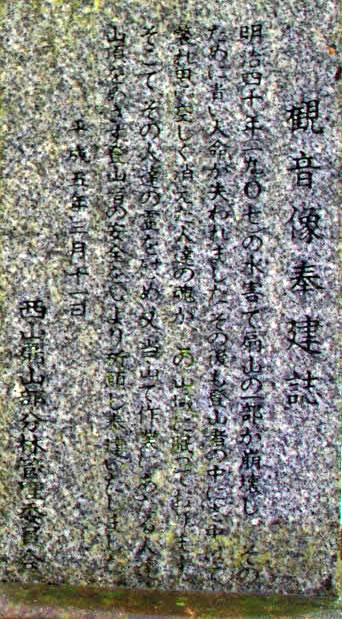 観音像奉建誌
明治四十年(一九〇七)の水害で扇山の一部が崩壊し その
ために尊い人命が失われました その後も登山者の中に
空しく消えた人達の魂が この山域に眠って
そこで その人達の霊を 又 当山で作業 人達
山頂をめざす登山者の安全を心より祈願し奉建いたしました
平成五年二月十一日
西山扇山部分林管理委員会